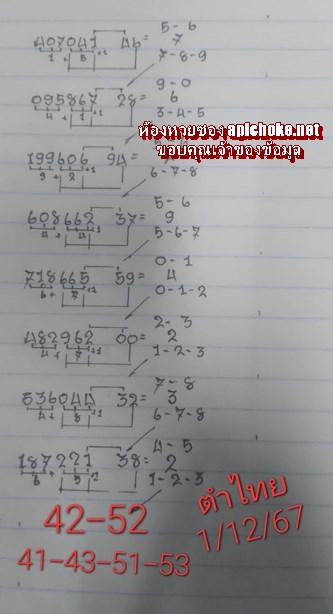 5-6
407041 46= 7
1+5+2 7-8-9
9-0
095867 28= 6
4+1+1 3-4-5
ห้องหวยซอง apichoke.net
ขอบคุณเจ้าของข้อมูล
199606 94=
6-7-8
5-6
608662 37= 9
4+4 5-6-7
0-1
718665 59= 4
6+7+1 0-1-2
2-3
482962 00= 2
4+7+1 1-2-3
7-8
536044 32= 3
4+8+1 6-7-8
4-5
187221 38= 2
6+5+2 1-2-3
ตำไทย
42-52
1/12/67
41-43-51-53